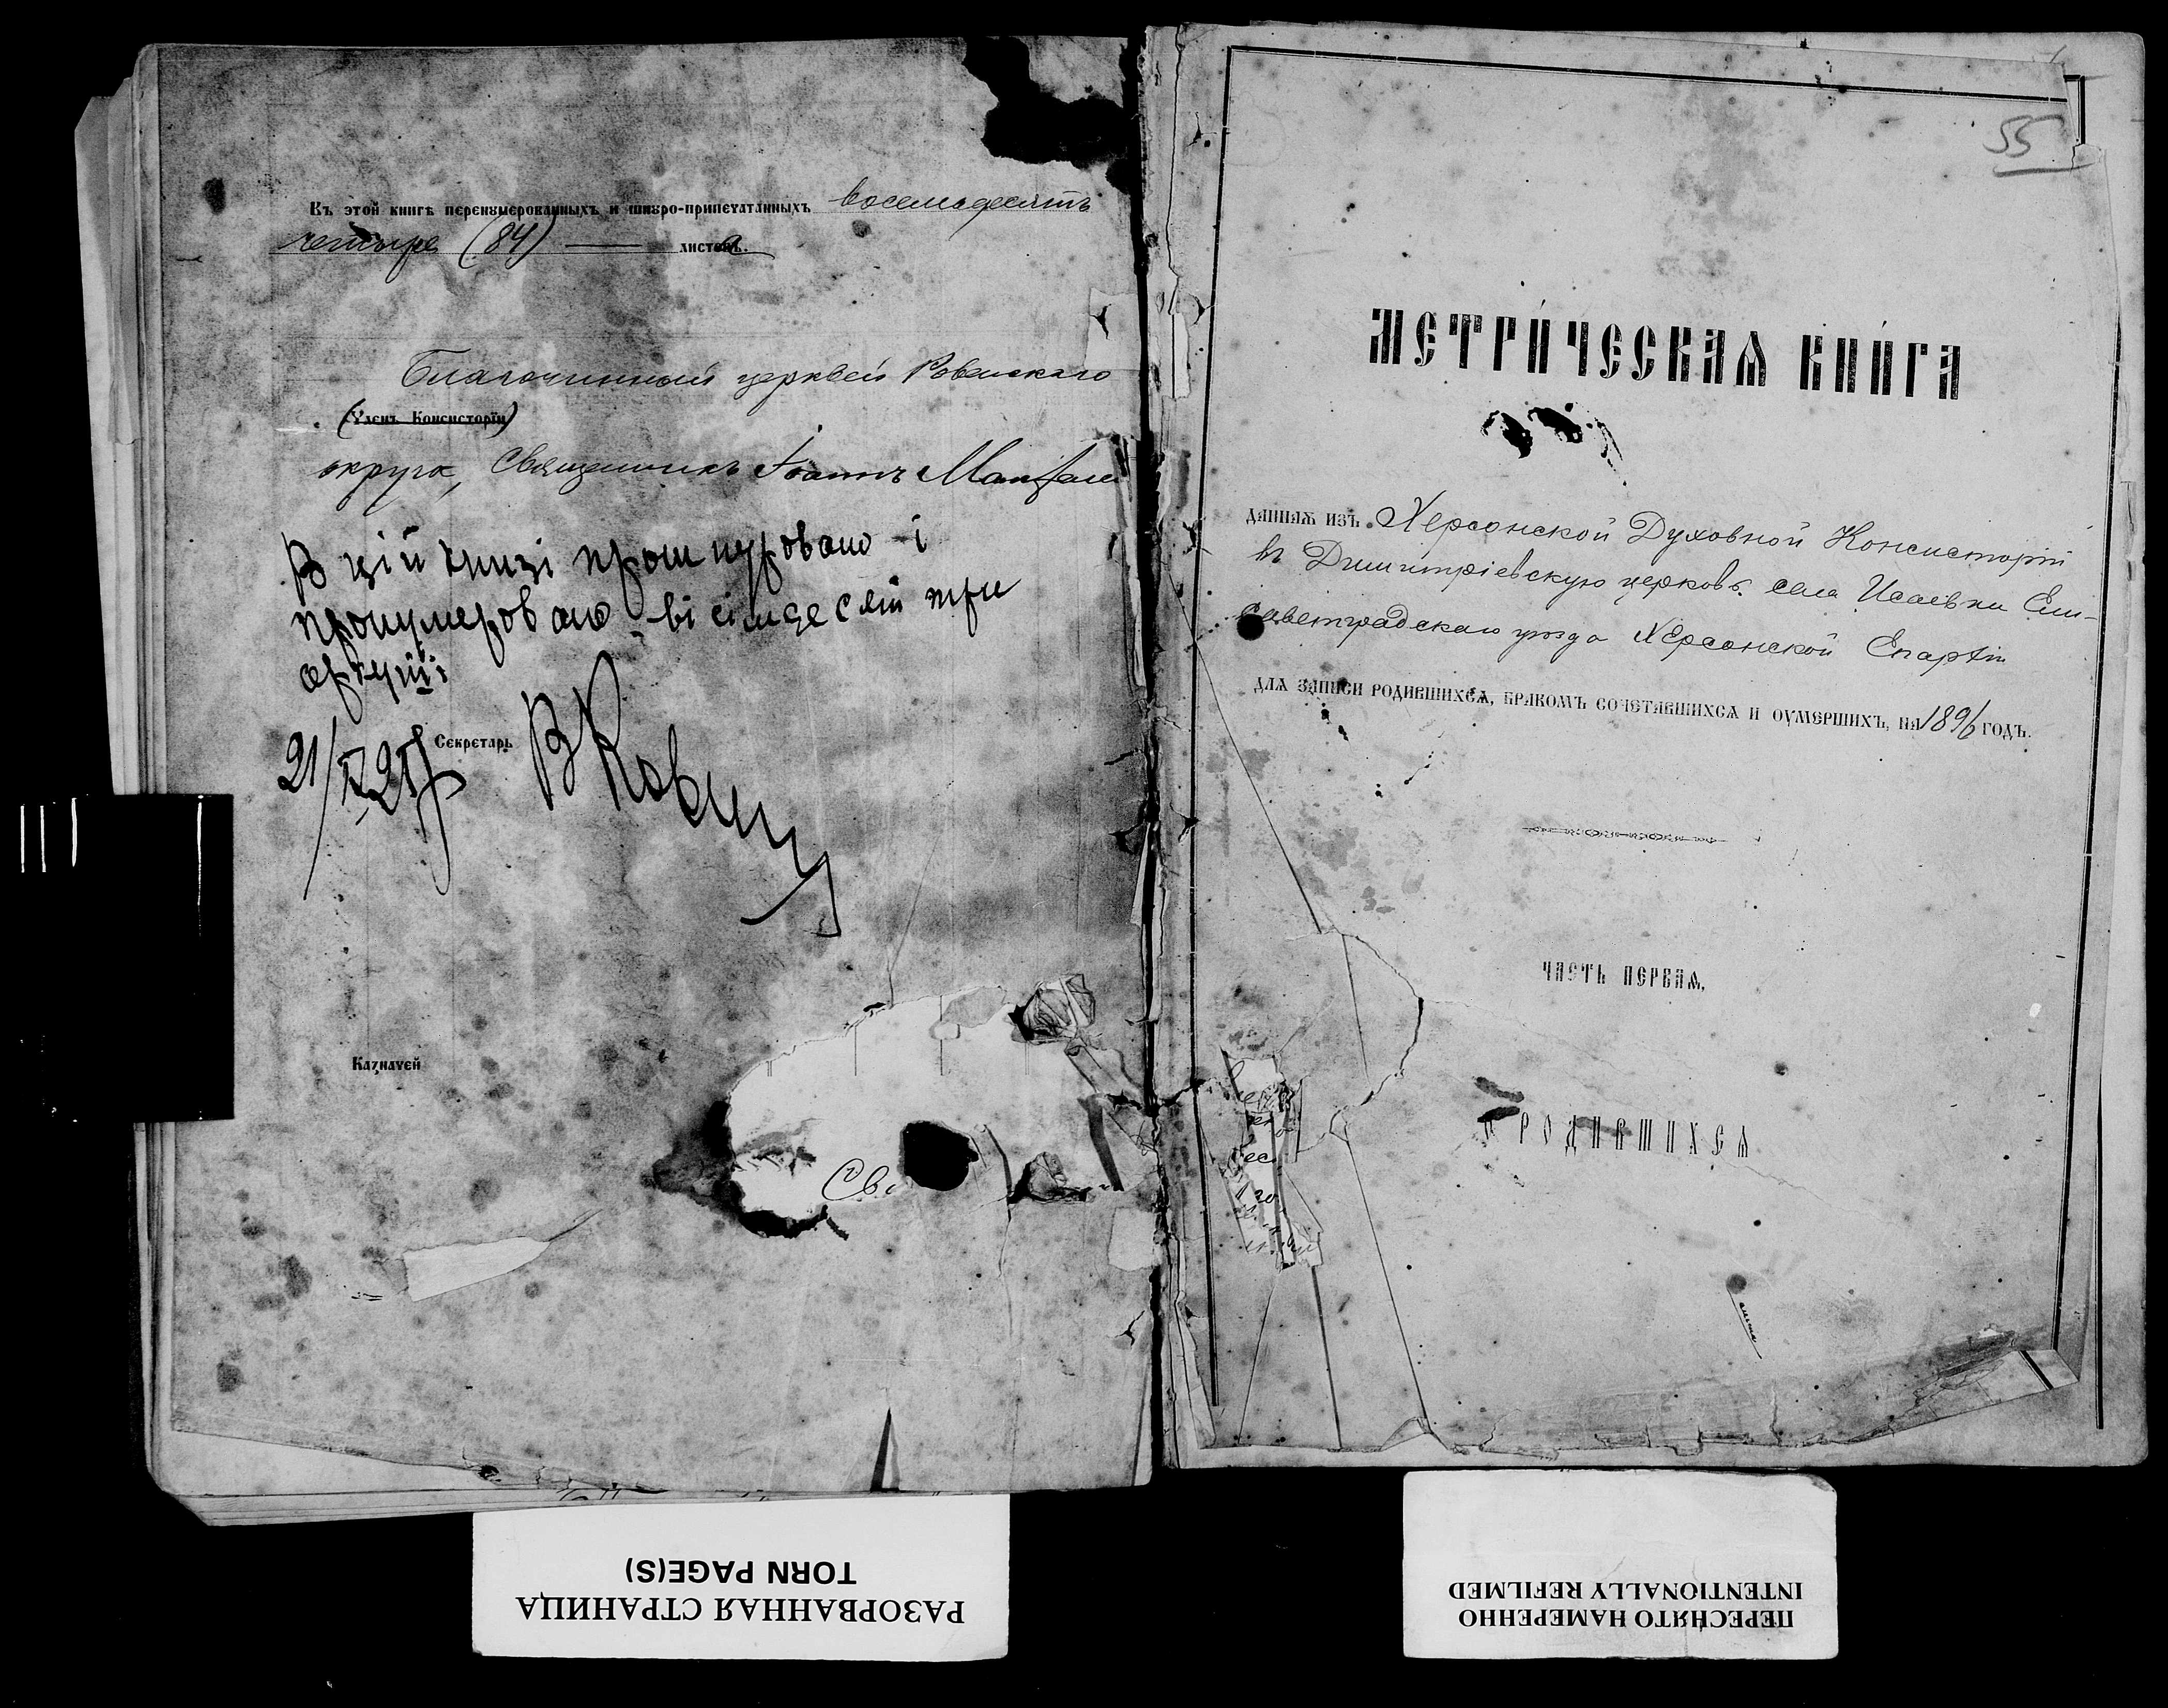 Въ этой книгѣ перенумерованныхъ и шнуро-припечатанныхъ восемьдесятъ
четыре (84) — листовъ.
Благочинный церквей Ровенскаго
(Членъ Консисторіи)
округа, Священникъ Іоаннъ
В цій книзі прошнуровано і
пронумеровано вісімдесят три
аркуші
Секретарь
Казначей
Св
РАЗОРВАННАЯ СТРАНИЦА
TORN PAGE(S)
55
МЕТРИ́ЧЕСКАѦ КНИ́ГА
даннаѧ изъ Херсонской Духовной Консисторіи
въ Димитріевскую церковь села Исаевки Ели-
саветградскаго уѣзда Херсонской Епархіи
длѧ записи родившихсѧ, бракомъ сочетавшихсѧ и оумершихъ, на 1896 годъ.
ЧАСТЬ ПЕРВАѦ.
О РОДИВШИХСѦ
ПЕРЕСНЯТО НАМЕРЕННО
INTENTIONALLY REFILMED